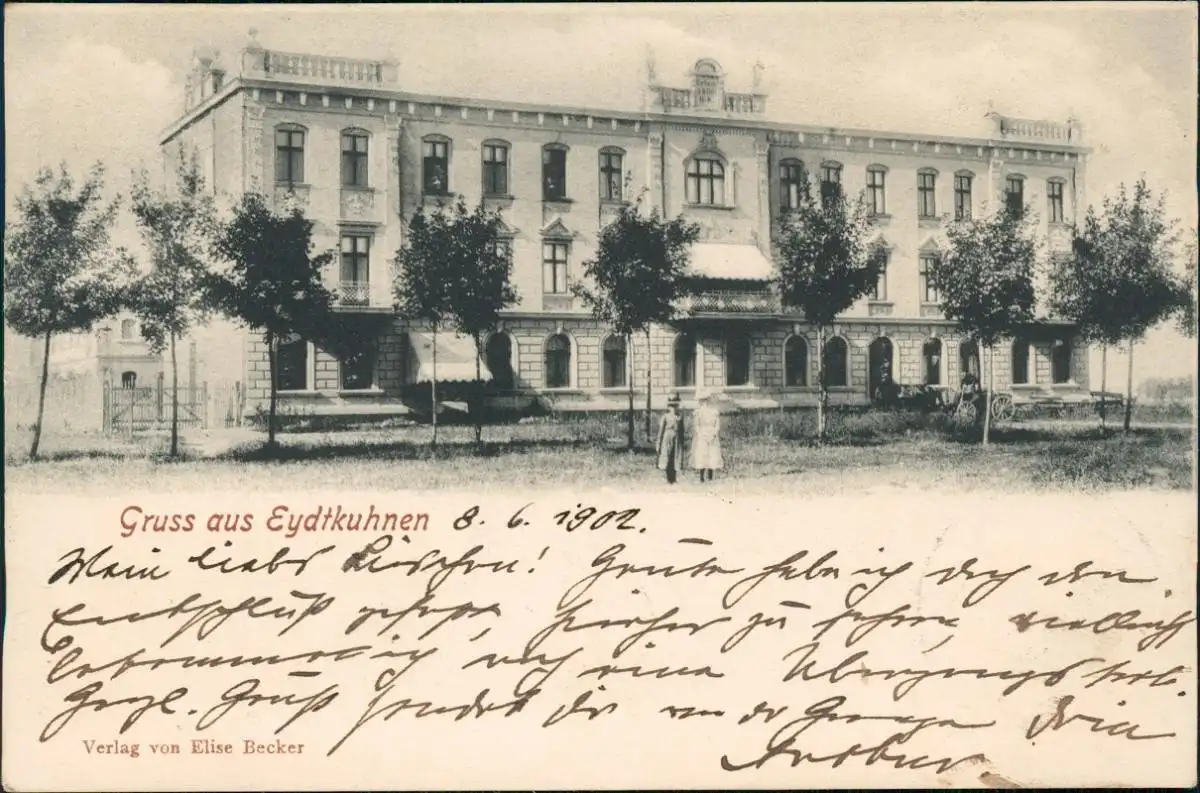 Gruss aus Eydtkuhnen 8. 6. 1902.
Mein liebes! Heute habe ich doch den
Entschluß gefaßt, hierher zu fahren, vielleicht
bekomme ich noch eine
Herzl. Gruß sendet Dir von der Grenze Dein
Arthur
Verlag von Elise Becker